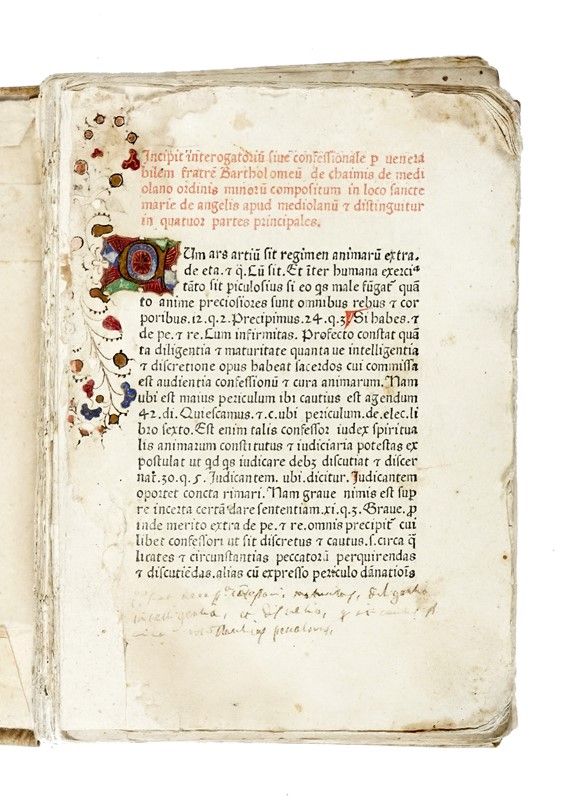 Incipit interogatoriū sive confessionale ꝑ venera
bilem fratrē Bartholomeū de chaimis de medi
olano ordinis minorū compositum in loco sancte
marie de angelis apud mediolanū ⁊ distinguitur
in quatuor partes principales.
CUm ars artiū sit regimen animarū extra.
de eta. ⁊ q̄. Cū sit. Et īter humana exerci
tāto sit ꝑiculosius si eo qs male fūgaṫ quā
to anime preciosiores sunt omnibus rebus ⁊ cor
poribus. 12. q. 2. Precipimus. 24. q. 3. Si habes. ⁊
de pe. ⁊ re. Cum infirmitas. Profecto constat quā
ta diligentia ⁊ maturitate quanta ue intelligentia
⁊ discretione opus habeat sacerdos cui commissa
est audientia confessionū ⁊ cura animarum. Nam
ubi est maius periculum ibi cautius est agendum
42. di. Quiescamus. ⁊. c. ubi periculum. de. elec. li
bro sexto. Est enim talis confessor iudex spiritua
lis animarum constitutus ⁊ iudiciaria potestas ex
postulat ut qd qs iudicare debꝫ discutiat ⁊ discer
nat. 30. q. 5. Judicantem. ubi. dicitur. Judicantem
oportet concta rimari. Nam grave nimis est suꝑ
re incerta certā dare sententiam. xi. q. 3. Grave. ꝓ
inde merito extra de pe. ⁊ re. omnis precipit̄ cui
libet confessori ut sit discretus ⁊ cautus. s. circa q̄
licates ⁊ circunstantias peccatorū perquirendas
⁊ discutiēdas. alias cū expresso periculo dānatiois
maturitas, diligentia
intelligentia, et